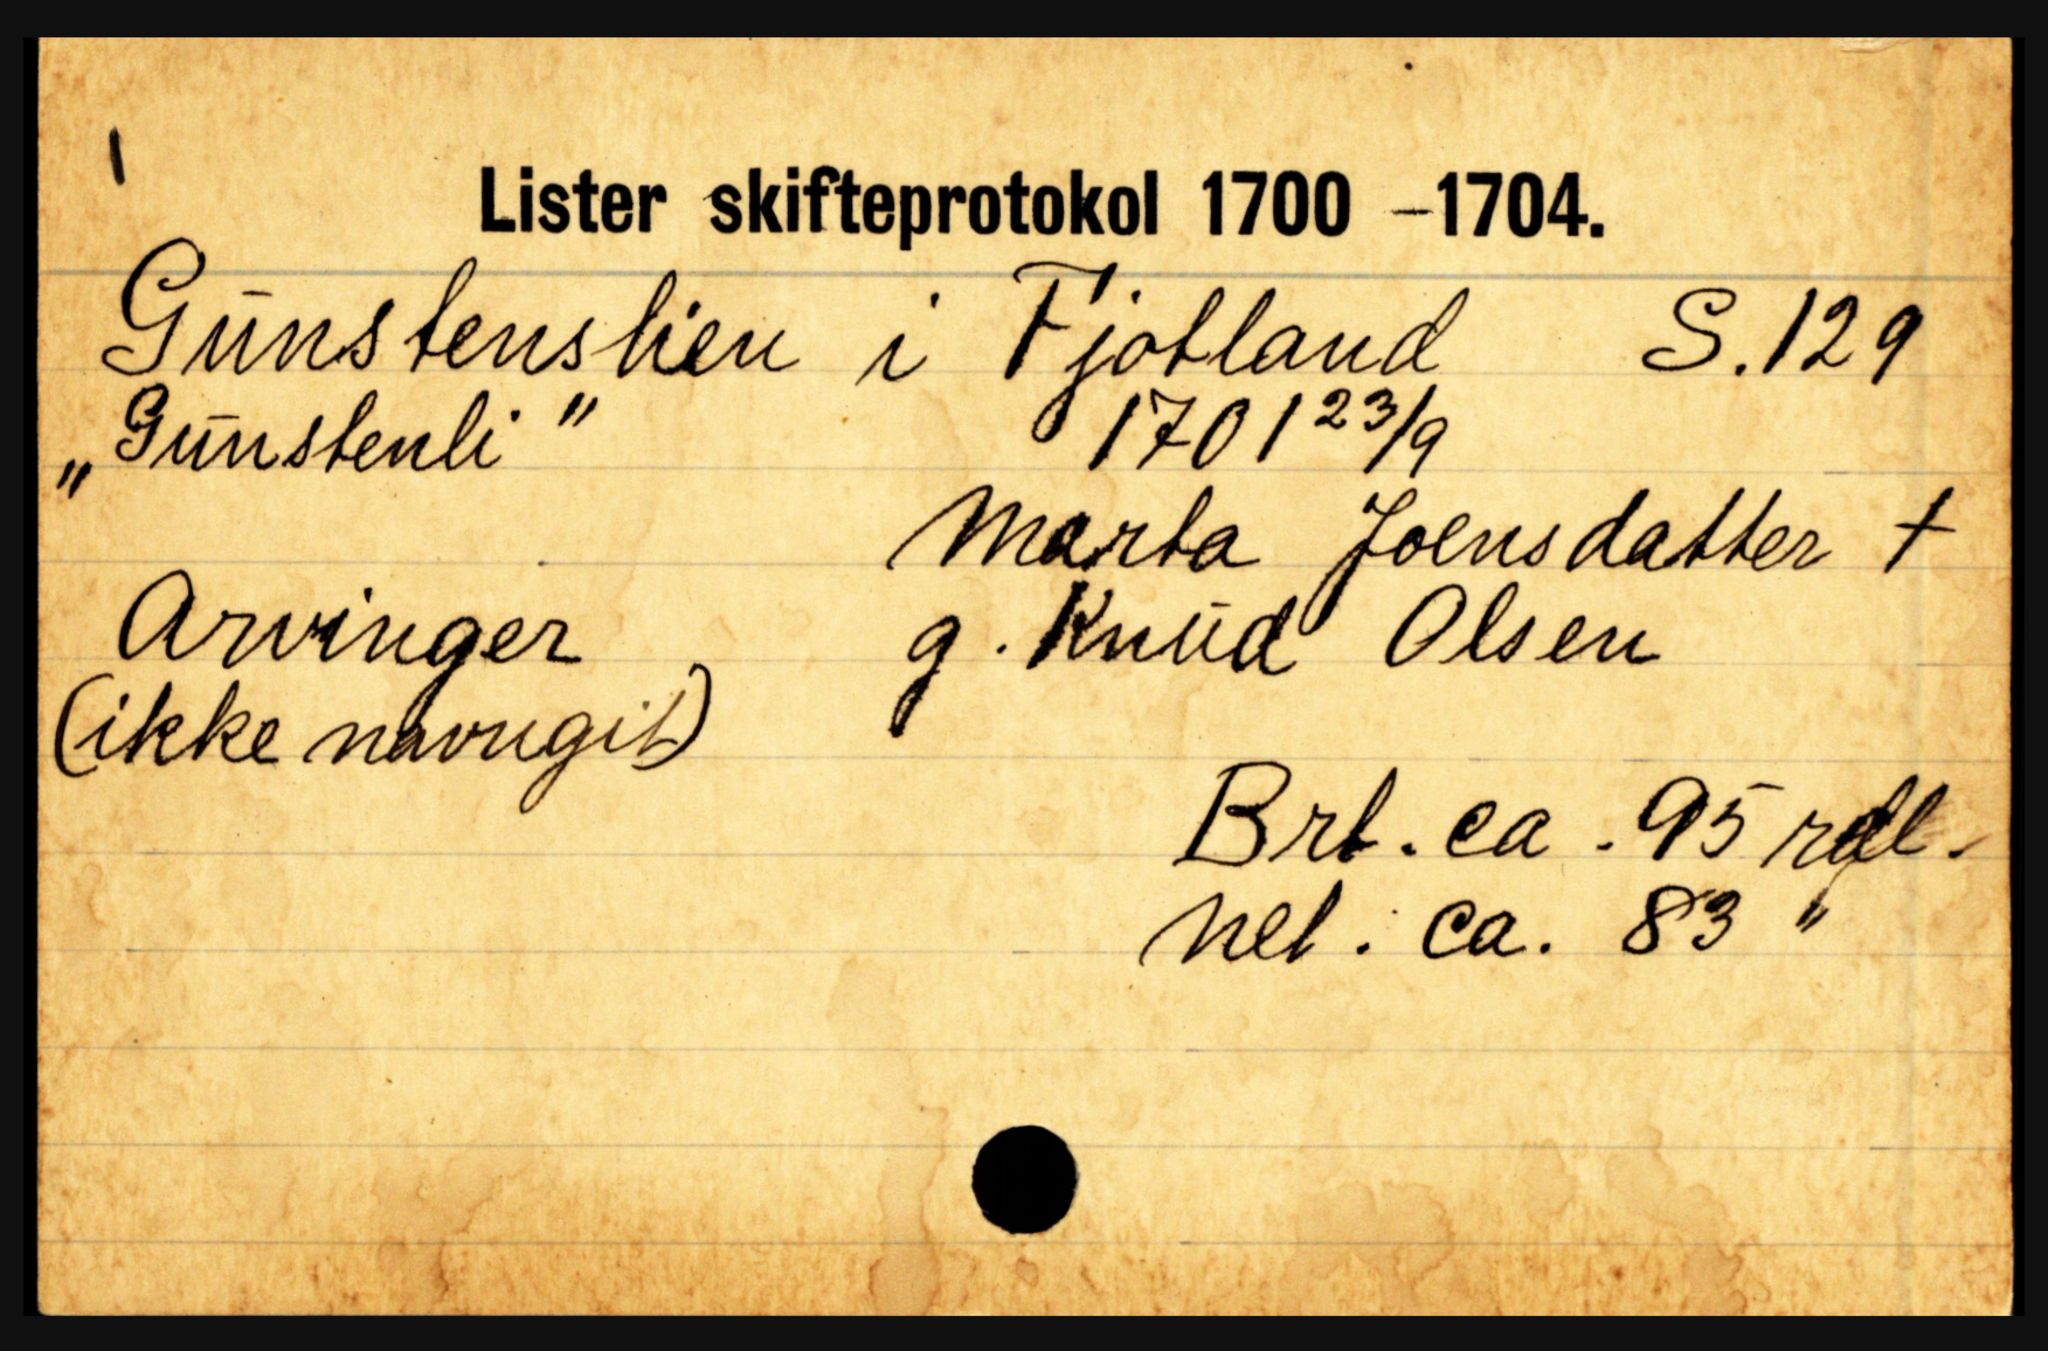 Lister skifteprotokol 1700 - 1704.
Gunstenslien i Fjotland S. 129
„Gunstenli" 1701 23/9
Marta Joensdatter †
Arvinger g. Knud Olsen
(ikke navngit)
Brt. ca. 95 rdl.
net. ca. 83 "